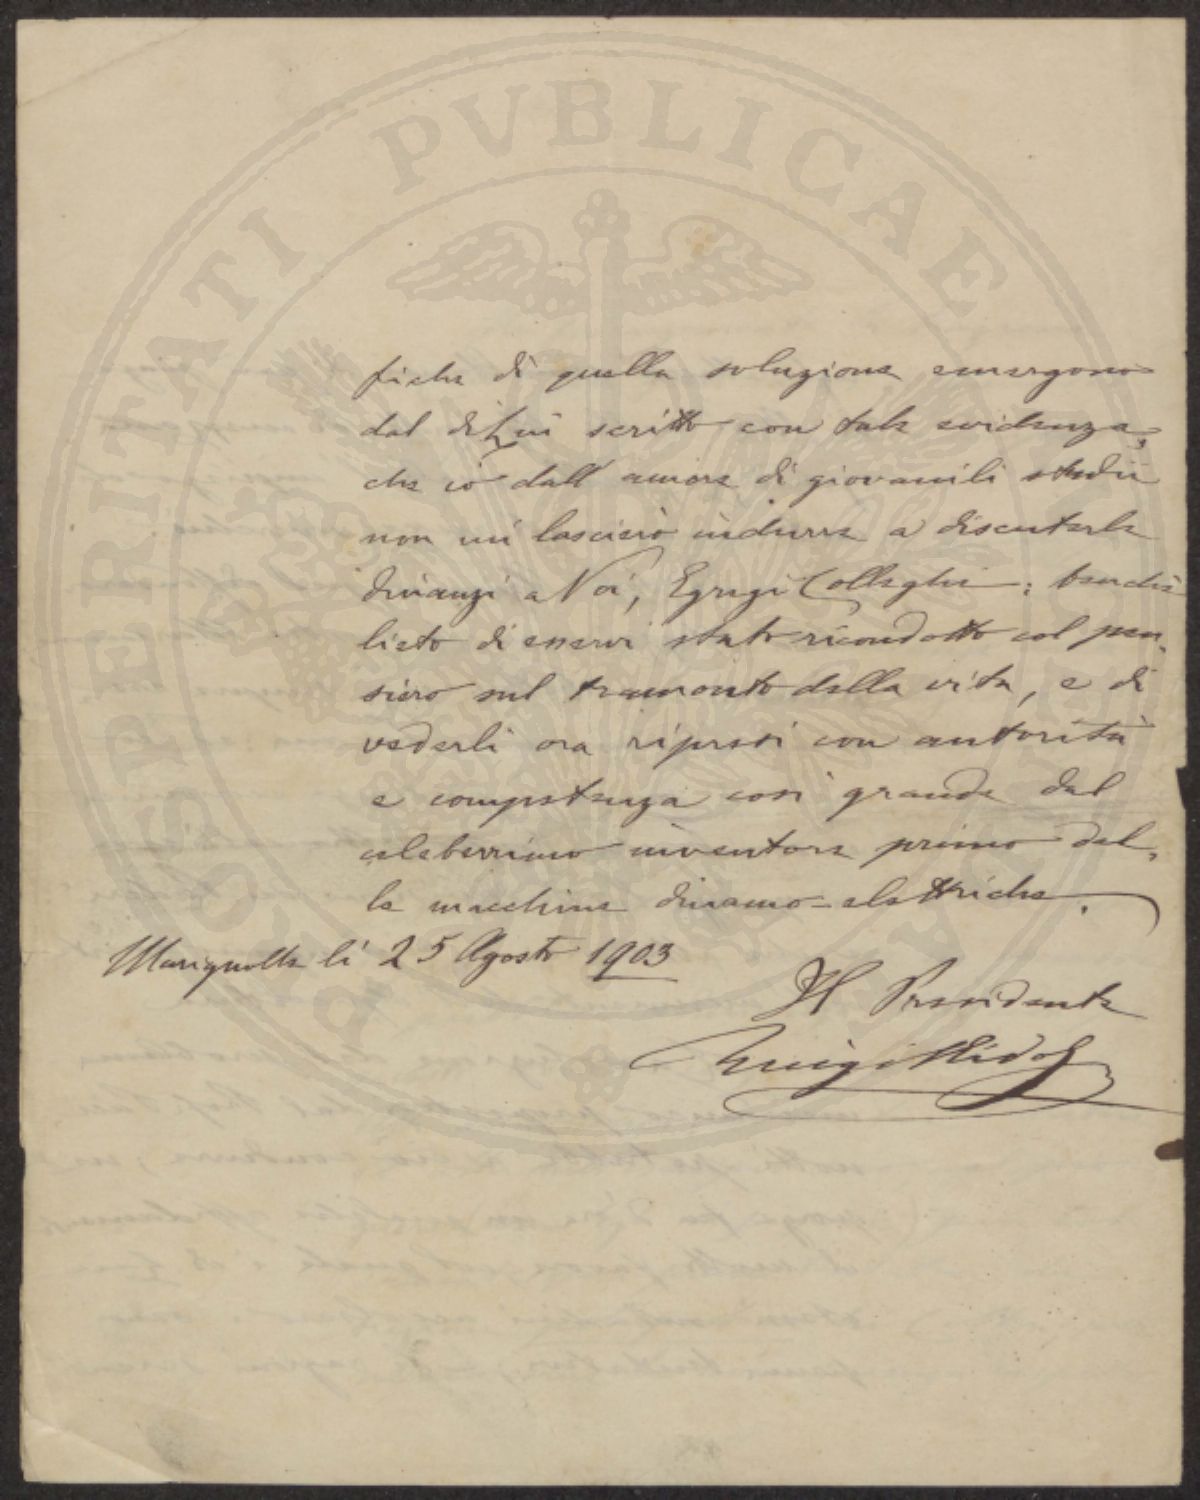 PROSPERITATI PVBLICAE AVGENDAE
fiche di quella soluzione emergono
dal di Lui scritto con tale evidenza,
che io dall'amore di giovanili studii
non mi lascierò indurre a discuterle
dinanzi a Voi, Egregi Colleghi: benchè
lieto di esservi stato ricondotto col pen-
siero sul tramonto della vita, e di
vederli ora ripresi con autorità
e competenza così grande dal
celeberrimo inventore primo del-
le macchine dinamo-elettriche.
Marignolle li 25 Agosto 1903
Il Presidente
Luigi Ridolfi